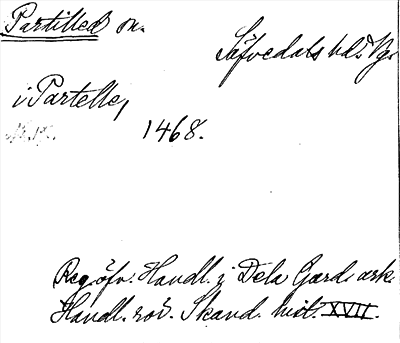 Partilled sn.
Säfvedals hd. Vg.
i Partelle,
1468.
Reg. öfv. Handl. i Dela Gard. ark.
Handl. rör. Skand. hist. XVII.